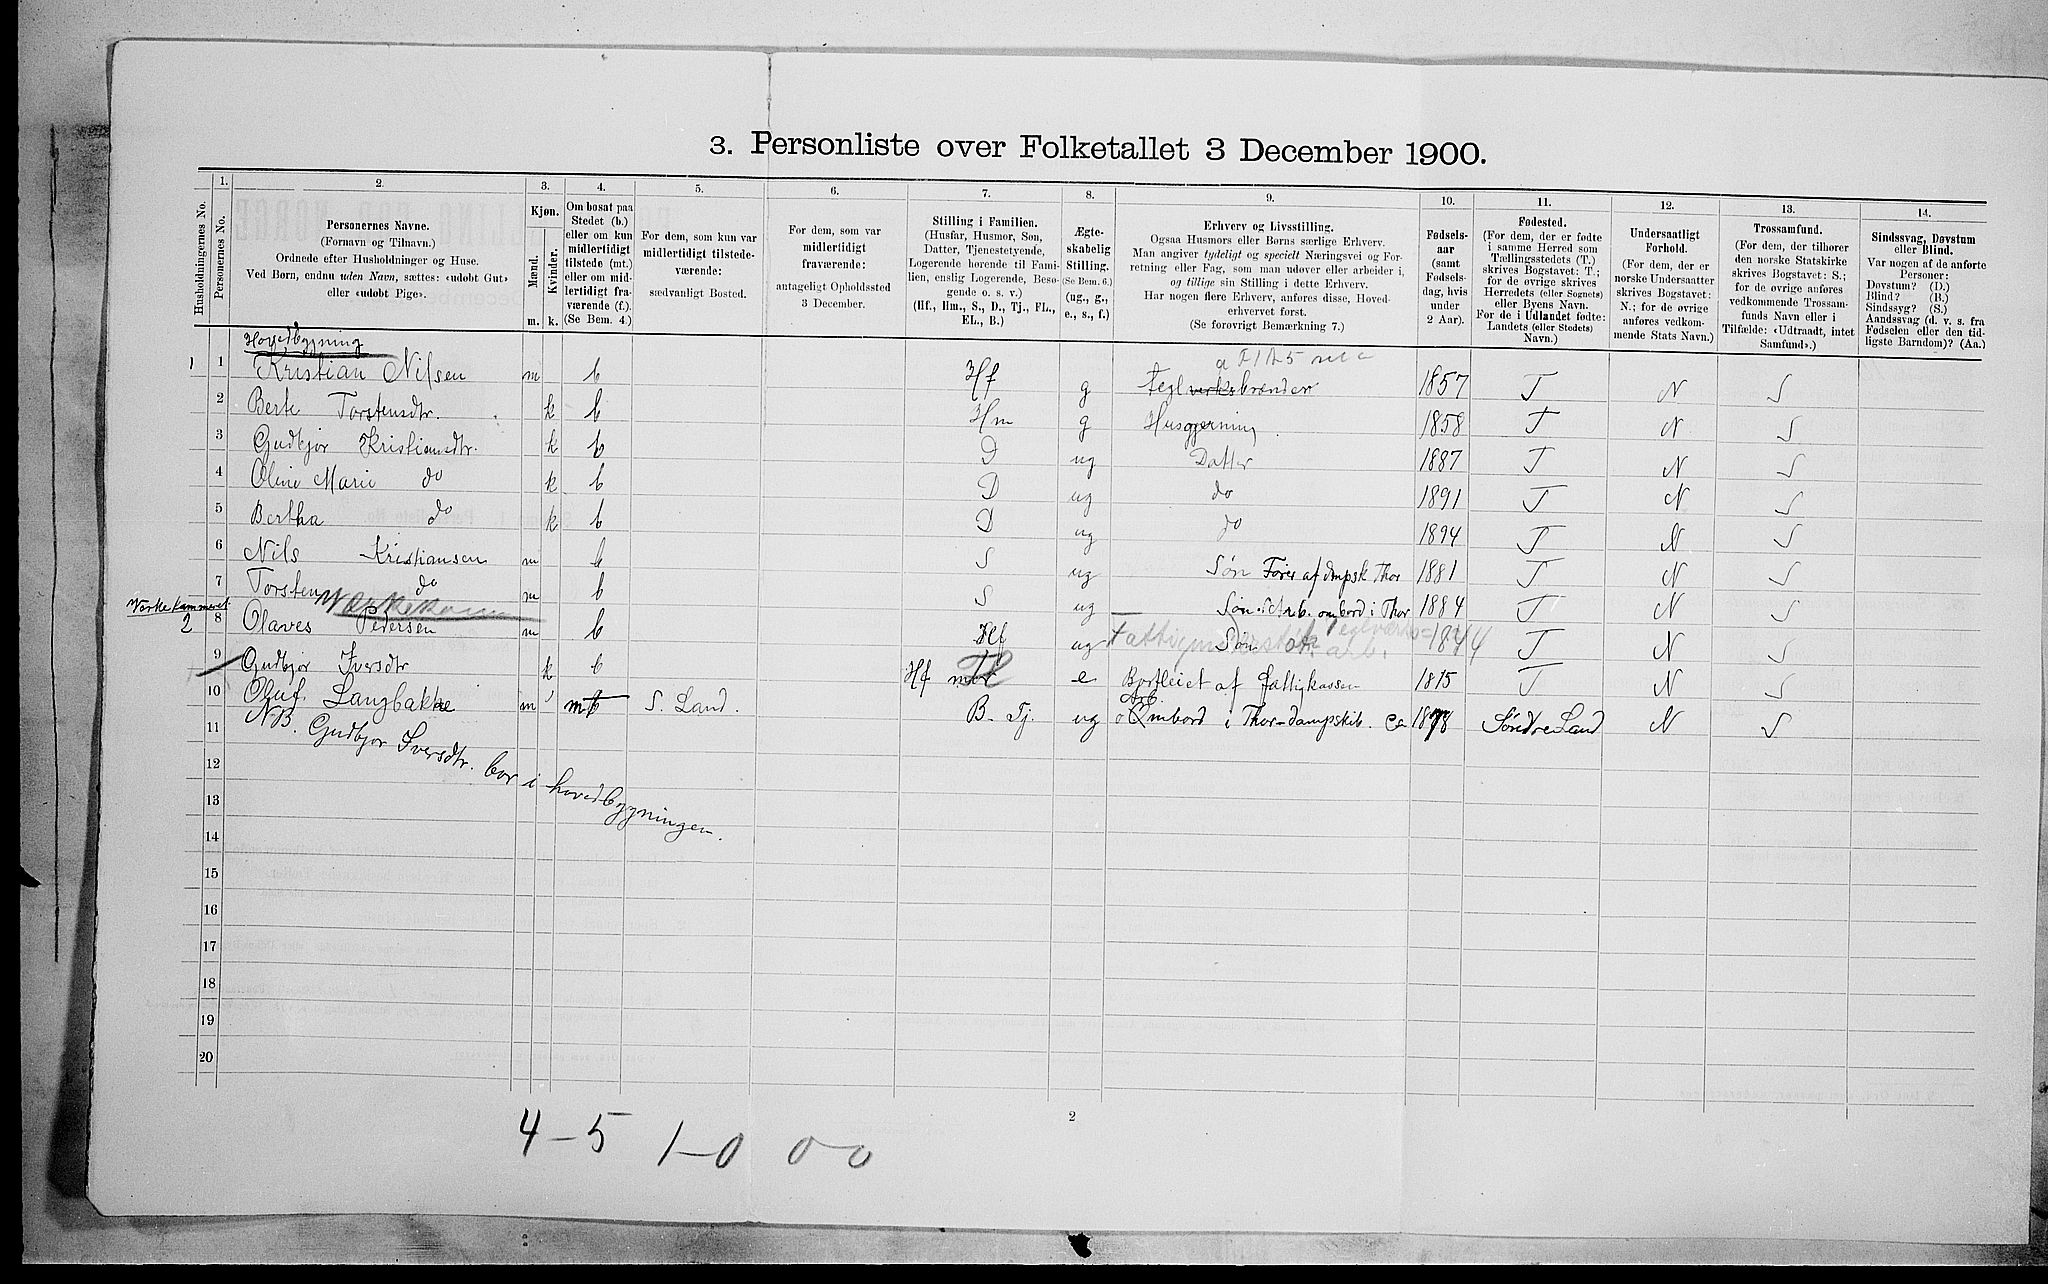 3. Personliste over Folketallet 3 December 1900.
Husholdningernes No.
1. Personernes No.
2. Personernes Navne.
(Fornavn og Tilnavn.)
Ordnede efter Husholdninger og Huse.
Ved Børn, endnu uden Navn, sættes: «udøbt Gut»
eller «udøbt Pige».
3. Kjøn.
Mænd. Kvinder.
m. k.
4. Om bosat paa
Stedet (b.)
eller om kun
midlertidigt
tilstede (mt.)
eller om mid-
lertidigt fra-
værende (f.).
(Se Bem. 4.)
5. For dem, som kun var
midlertidigt tilstede-
værende:
sædvanligt Bosted.
6. For dem, som var
midlertidigt
fraværende:
antageligt Opholdssted
3 December.
7. Stilling i Familien.
(Husfar, Husmor, Søn,
Datter, Tjenestetyende,
Logerende hørende til Fami-
lien, enslig Logerende, Besø-
gende o. s. v.)
(Hf., Hm., S., D., Tj., FL.,
EL., B.)
8. Ægte-
skabelig
Stilling.
(Se Bem. 6.)
(ug., g.,
e., s., f.)
9. Erhverv og Livsstilling.
Ogsaa Husmors eller Børns særlige Erhverv.
Man angiver tydeligt og specielt Næringsvei og For-
retning eller Fag, som man udøver eller arbeider i,
og tillige sin Stilling i dette Erhverv.
Har nogen flere Erhverv, anføres disse, Hoved-
erhvervet først.
(Se forøvrigt Bemærkning 7.)
10. Fødsels-
aar
(samt
Fødsels-
dag, hvis
under
2 Aar).
11. Fødested.
(For dem, der er fødte
i samme Herred som
Tællingsstedets (T.)
skrives Bogstavet: T;
for de øvrige skrives
Herredets (eller Sognets)
eller Byens Navn.
For de i Udlandet fødte:
Landets (eller Stedets)
Navn.)
12. Undersaatligt
Forhold.
(For dem, der er
norske Undersaatter
skrives Bogstavet:
N.; for de øvrige
anføres vedkom-
mende Stats Navn.)
13. Trossamfund.
(For dem, der tilhører
den norske Statskirke
skrives Bogstavet: S.;
for de øvrige anføres
vedkommende Trossam-
funds Navn eller i
Tilfælde: «Udtraadt, intet
Samfund».)
14. Sindssvag, Døvstum
eller Blind.
Var nogen af de anførte
Personer:
Døvstum? (D.)
Blind? (B.)
Sindssyg? (S.)
Aandssvag (d. v. s. fra
Fødselen eller den tid-
ligste Barndom)? (Aa.)
Hovedbygning
1 1 Kristian Nilsen m b Hf g Teglverksbrænder 1857 T N S
2 Berte Torstensdtr. k b Hm g Husgjerning 1858 T N S
3 Gudbjør Kristiansdtr. k b D ug Datter 1887 T N S
4 Oline Marie do k b D ug do 1891 T N S
5 Bertha do k b D ug do 1894 T N S
6 Nils Kristiansen m b S ug Søn Fører af dampsk Thor 1881 T N S
7 Torsten do m b S ug Søn. arb. ombord i Thor 1884 T N S
Værkekammeret
2 8 Olaves Pedersen m b ug Søn Teglværksarb. 1844 T N S
9 Gudbjør Iversdtr k b Hf e Bortleiet af fattigkassen 1815 T N S
10 Oluf. Langbakke m mt S. Land. B. Tj. ug Ombord i Thor-dampskib. ca 1878 Søndre Land N S
11 NB. Gudbjør Iversdtr. bor i hovedbygningen.
12
13
14
15
16
17
18
19
20
2
4-5 1-0 0-0